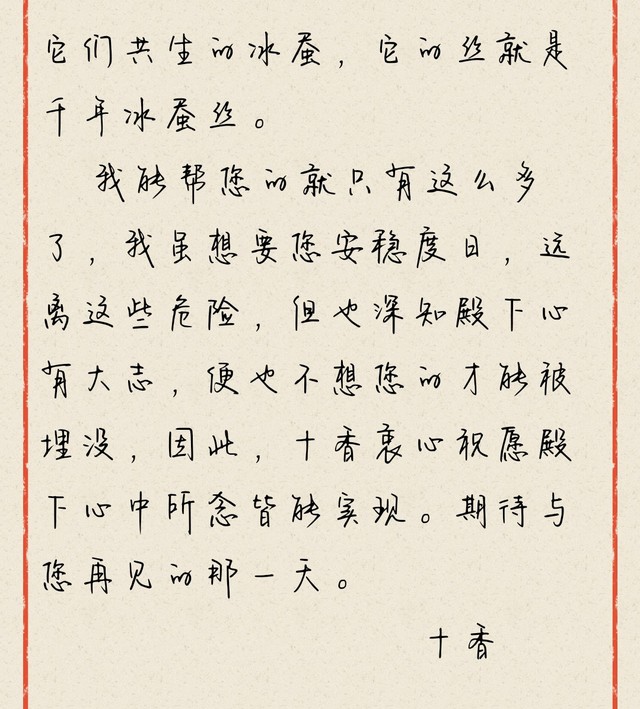 它们共生的冰蚕，它的丝就是
千年冰蚕丝。
我能帮您的就只有这么多
了，我虽想要您安稳度日，远
离这些危险，但也深知殿下心
有大志，便也不想您的才能被
埋没，因此，十香衷心祝愿殿
下心中所念皆能实现。期待与
您再见的那一天。
十香